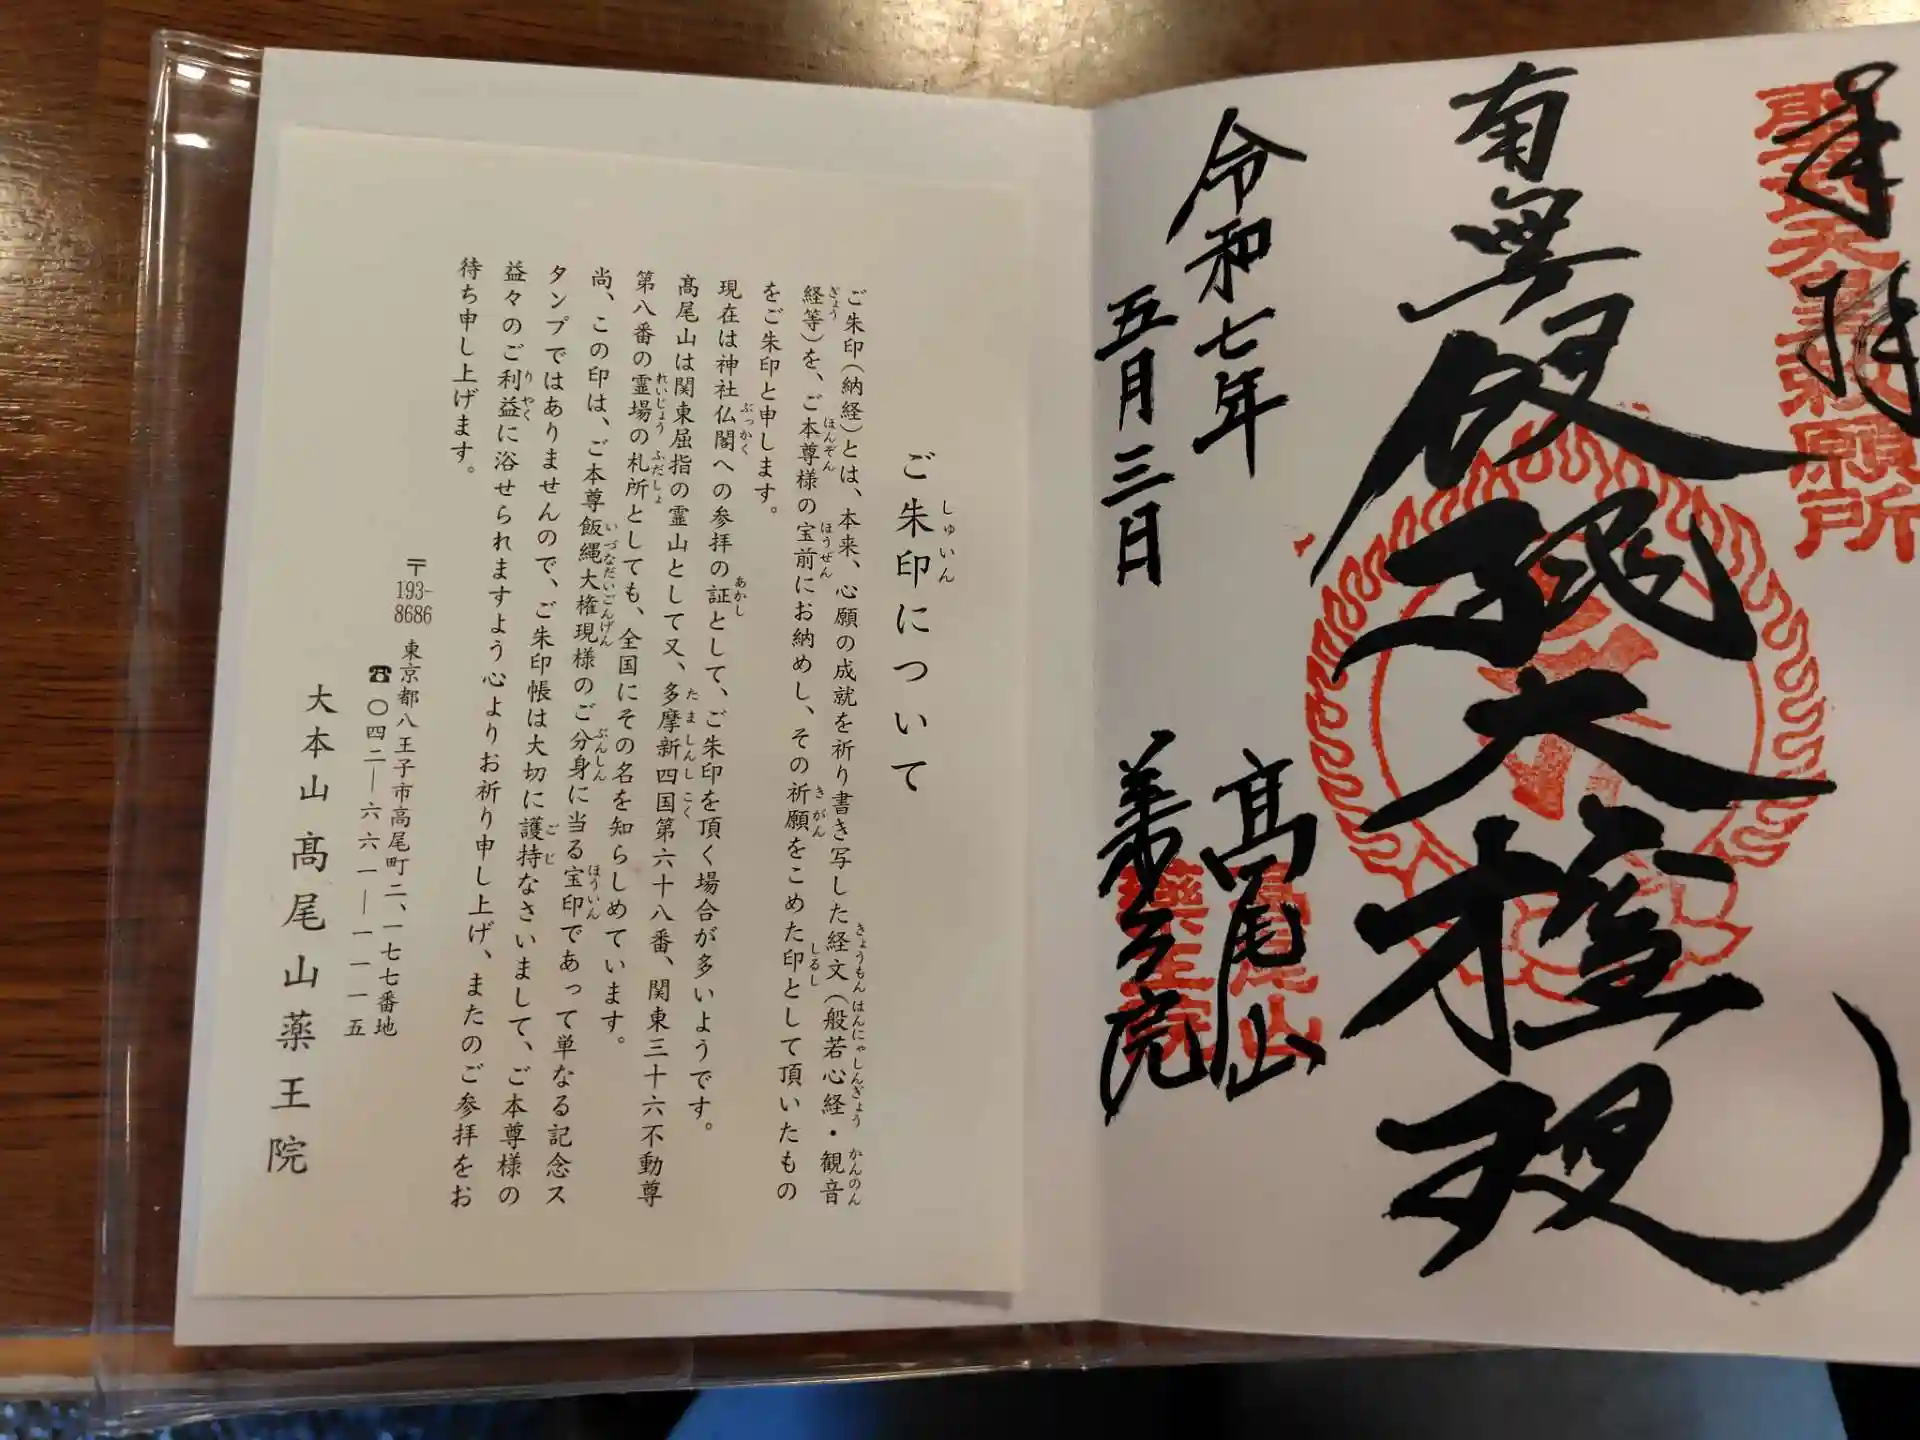 奉拝
聖武天皇勅願所
南無飯縄大権現
令和七年
五月三日
高尾山
薬王院
高尾山
薬王院
ご朱印について
しゅいん
ご朱印（納経）とは、本来、心願の成就を祈り書き写した経文（般若心経・観音
経等）を、ご本尊様の宝前にお納めし、その祈願をこめた印として頂いたもの
をご朱印と申します。
現在は神社仏閣への参拝の証として、ご朱印を頂く場合が多いようです。
髙尾山は関東屈指の霊山として又、多摩新四国第六十八番、関東三十六不動尊
第八番の霊場の札所としても、全国にその名を知らしめています。
尚、この印は、ご本尊飯縄大権現様のご分身に当る宝印であって単なる記念ス
タンプではありませんので、ご朱印帳は大切に護持なさいまして、ご本尊様の
益々のご利益に浴せられますよう心よりお祈り申し上げ、またのご参拝をお
待ち申し上げます。
〒193-8686 東京都八王子市高尾町二、一七七番地
☎〇四二―六六一―一一一五
大本山 髙尾山薬王院